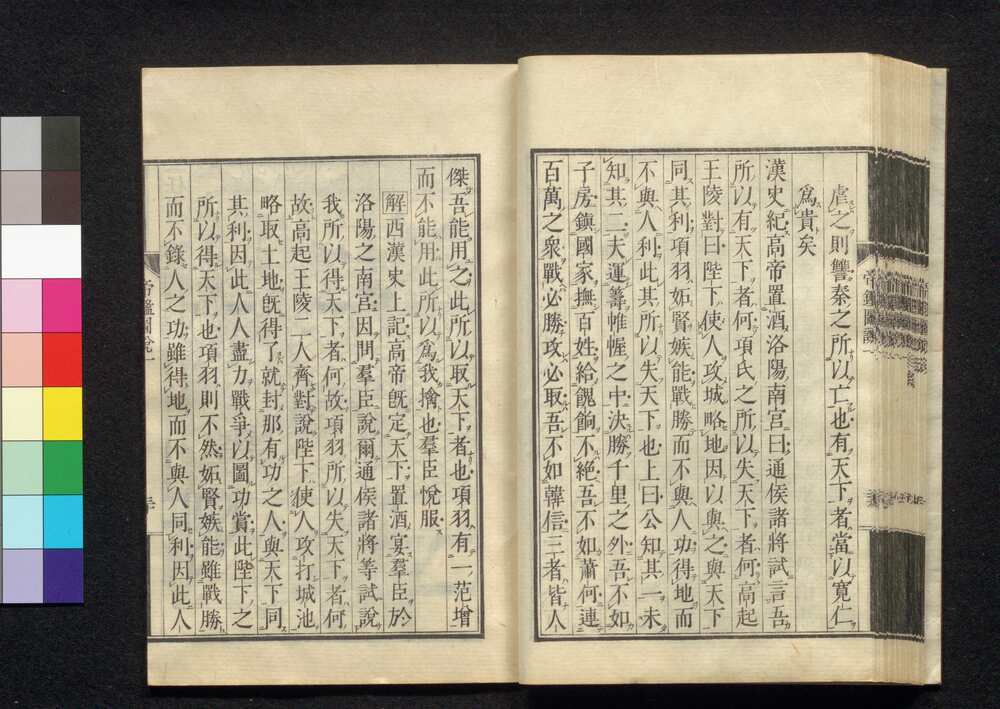 虐之則讐秦之所以亡也有天下者當以寬仁
爲貴矣
漢史紀高帝置酒洛陽南宮曰通侯諸將試言吾
所以有天下者何項氏之所以失天下者何高起
王陵對曰陛下使人攻城略地因以與之與天下
同其利項羽妬賢嫉能戰勝而不與人功得地而
不與人利此其所以失天下也上曰公知其一未
知其二夫運籌帷幄之中決勝千里之外吾不如
子房鎭國家撫百姓給餽餉不絶吾不如蕭何連
百萬之衆戰必勝攻必取吾不如韓信三者皆人
傑吾能用之此所以取天下者也項羽有一范增
而不能用此所以爲我擒也羣臣悅服
解西漢史上記高帝旣定天下置酒宴羣臣於
洛陽之南宮因問羣臣說爾通侯諸將等試說
我所以得天下者何故項羽所以失天下者何
故高起王陵二人齊對說陛下使人攻打城池
略取土地旣得了就封那有功之人與天下同
其利因此人人盡力戰爭以圖功賞此陛下之
所以得天下也項羽則不然妬賢嫉能雖戰勝
而不錄人之功雖得地而不與人同利因此人
帝鑑圖說